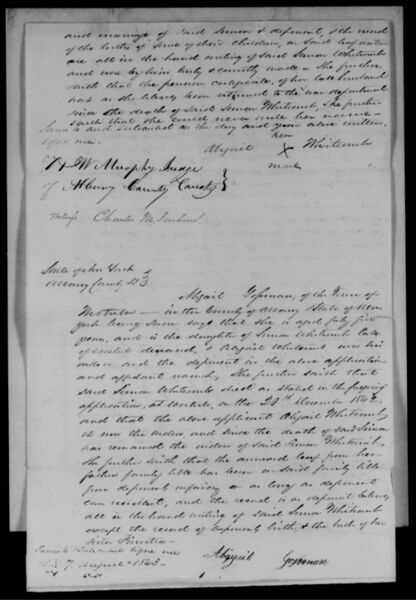 and marriage of said Simon & deponent, & the record
of the births of some of their children, on said leaf
are all in the hand writing of said Simon Whitcomb
and were by him truly & correctly made — She further
saith that the pension certificate, of her late husband
has as she believes been returned to the war department
since the death of said Simon Whitcomb, She further
saith that she could never write her name
Sworn to and subscribed on the day and year above written
before me.
her
Abigail X Whitcomb
mark
W Murphy Judge
of Albany County Courts }
witness Charles M Jenkins
State of New York
Albany County SS
Abigail of the Town of
in the County of Albany State of New
York being sworn says that she is aged fifty five
years, and is the daughter of Simon Whitcomb late
of deceased, & Abigail Whitcomb was his
widow, and the deponent in the above application
and affidavit named, She further saith that
said Simon Whitcomb died as stated in the foregoing
application, at on the 24th December 184
and that the above applicant Abigail Whitcomb,
is now the widow and since the death of said Simon
has remained the widow of said Simon Whitcomb.
She further saith that the annexed leaf from her
fathers family bible has been in said family bible
from deponents infancy or as long as deponent
can recollect, and the record is as deponent believes
all in the hand writing of said Simon Whitcomb
except the record of deponents birth, & the birth of her
sister
Sworn & subscribed before me
7 August 1843
Abigail